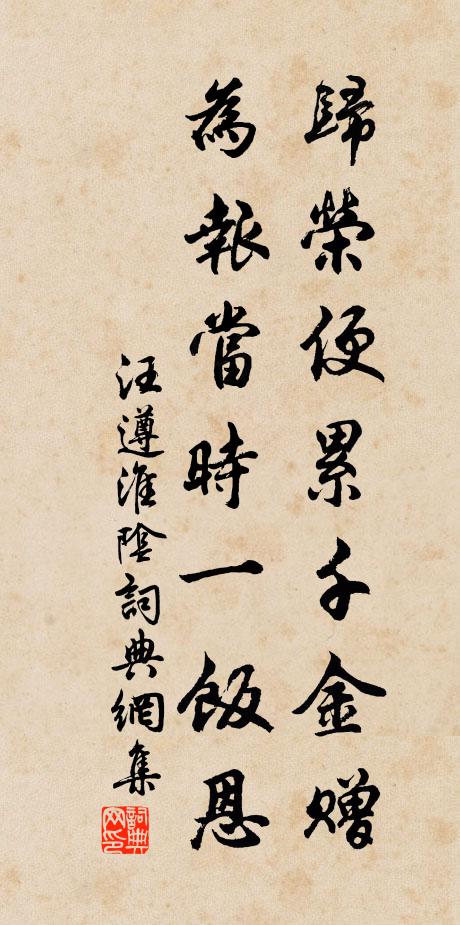 歸榮便累千金贈
為報當時一飯恩
汪遵淮陰詞典網集
詞典網印